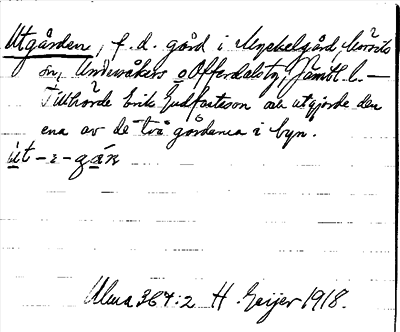 Utgården, f. d. gård i Myckelgård, Mörsils
sn, Undersåkers o Offerdals tg, Jämtl. l. –
Tillhörde Erik Gudfastsson och utgjorde den
ena av de två gårdarna i byn.
út -ɛ- gáɳ
Ulma 364:2 H. Geijer 1918.